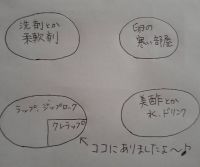 洗剤とか
柔軟剤
臼の
寒い部屋
ラップ、ジップロック
クレラップ
美酢とか
水、ドリンク
ココにありましたよ〜♪